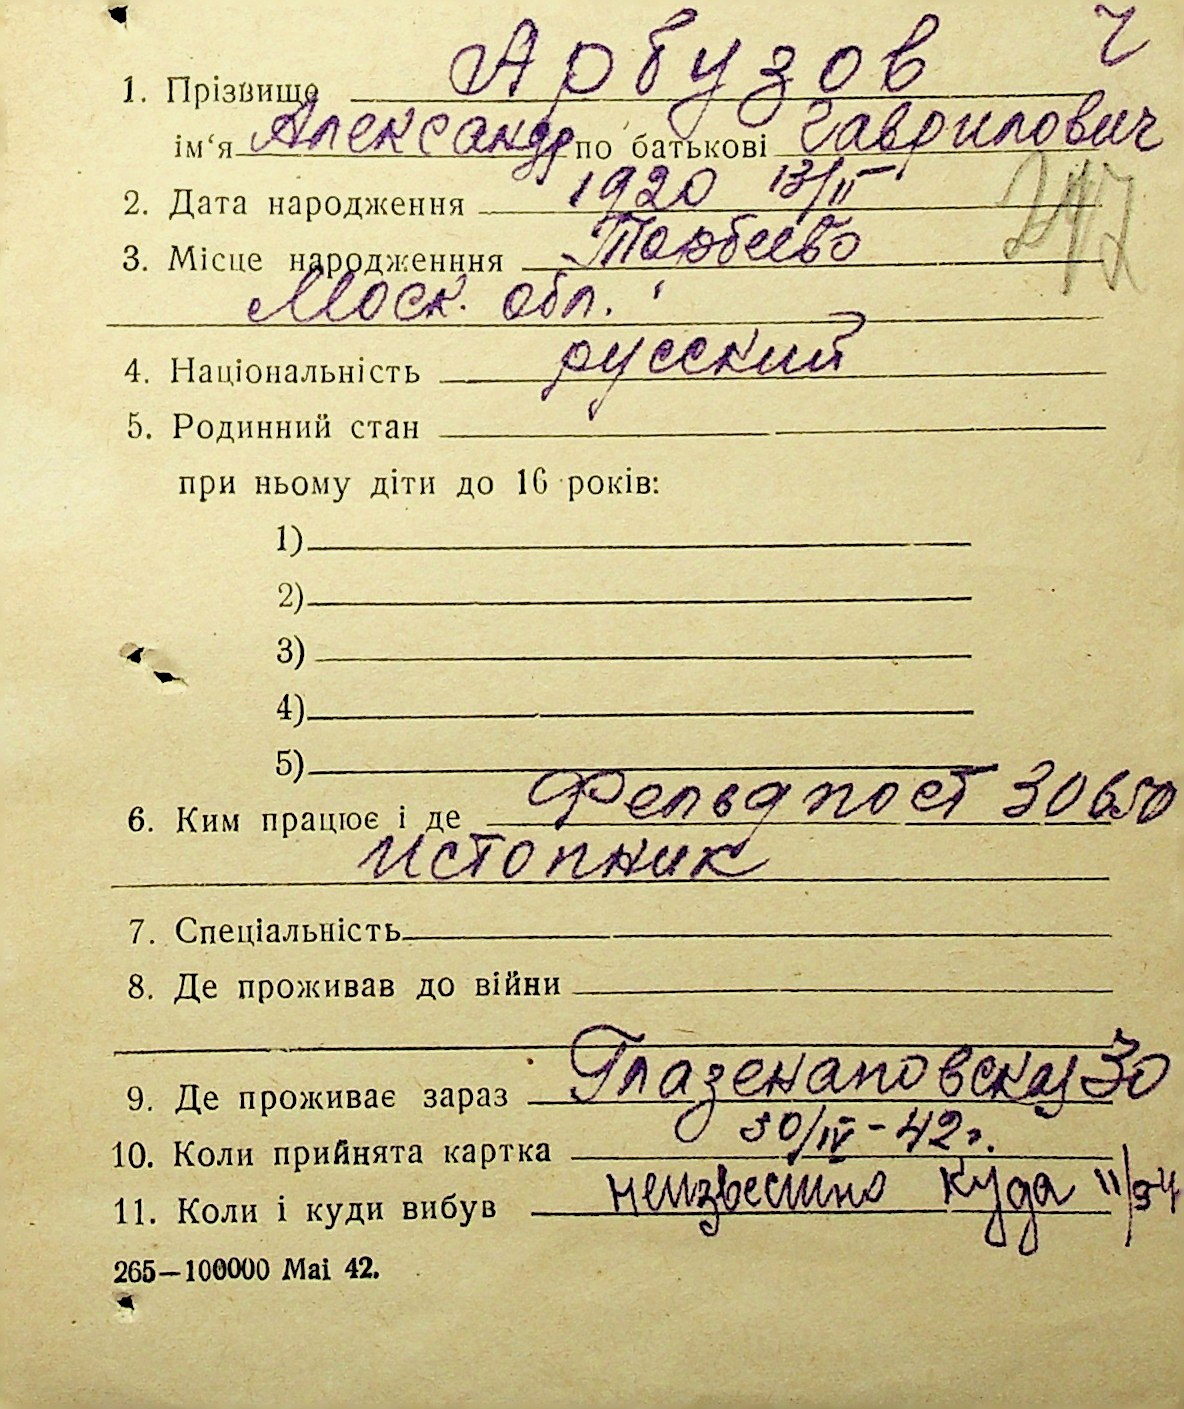 ч
1. Прізвище Арбузов
ім‘я Александр по батькові Гаврилович
2. Дата народження 1920 13/II
247
3. Місце народженння
Моск. обл.
4. Національність русский
5. Родинний стан
при ньому діти до 16 років:
1)
2)
3)
4)
5)
6. Ким працює і де Фельдпост 30650
истопник
7. Спеціальність
8. Де проживав до війни
9. Де проживає зараз Глазенаповская 30
10. Коли прийнята картка 30/IV-42г.
11. Коли і куди вибув неизвестно куда
265—100000 Mai 42.